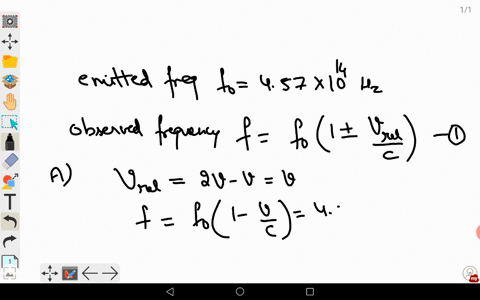 1/1
emitted freq f₀ = 4.57 × 10¹⁴ Hz
observed frequency f = f₀ (1 ± V_rel/c) — ①
A) V_rel = 2v - v = v
f = f₀ (1 - v/c) = 4..
T
1